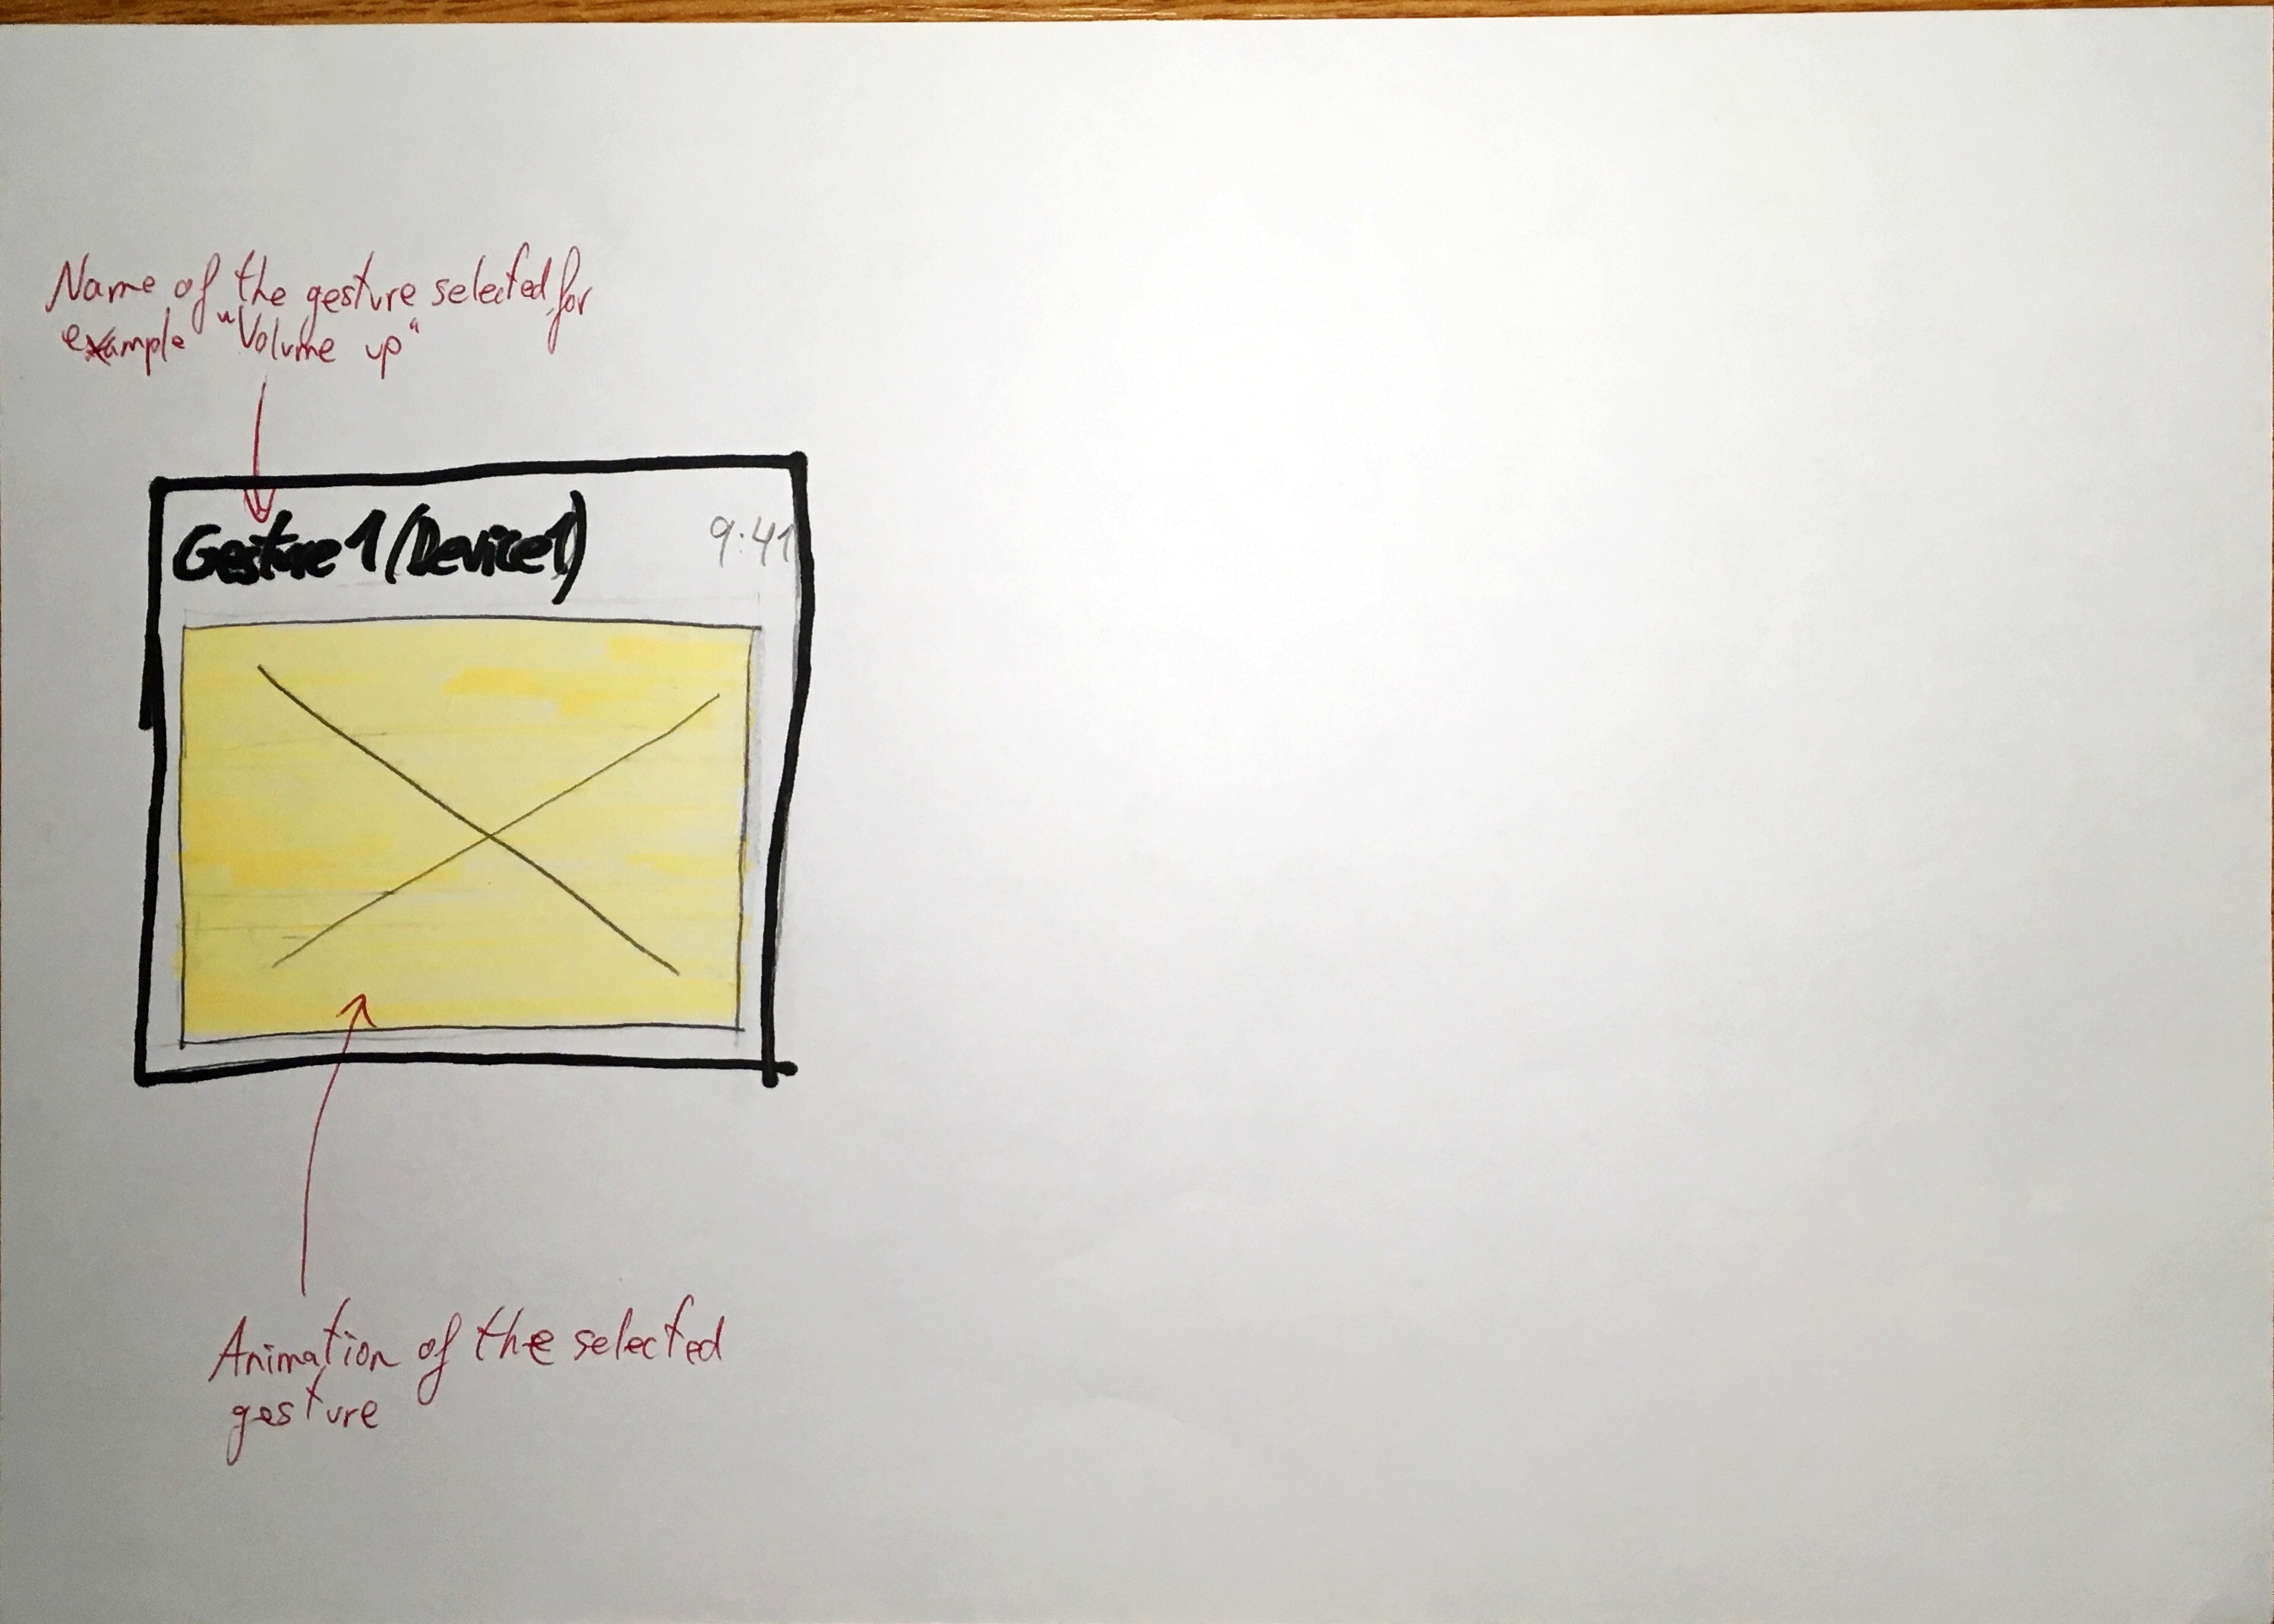 Name of the gesture selected, for
example "Volume up"
Gesture 1 (Device1)
9:41
Animation of the selected
gesture